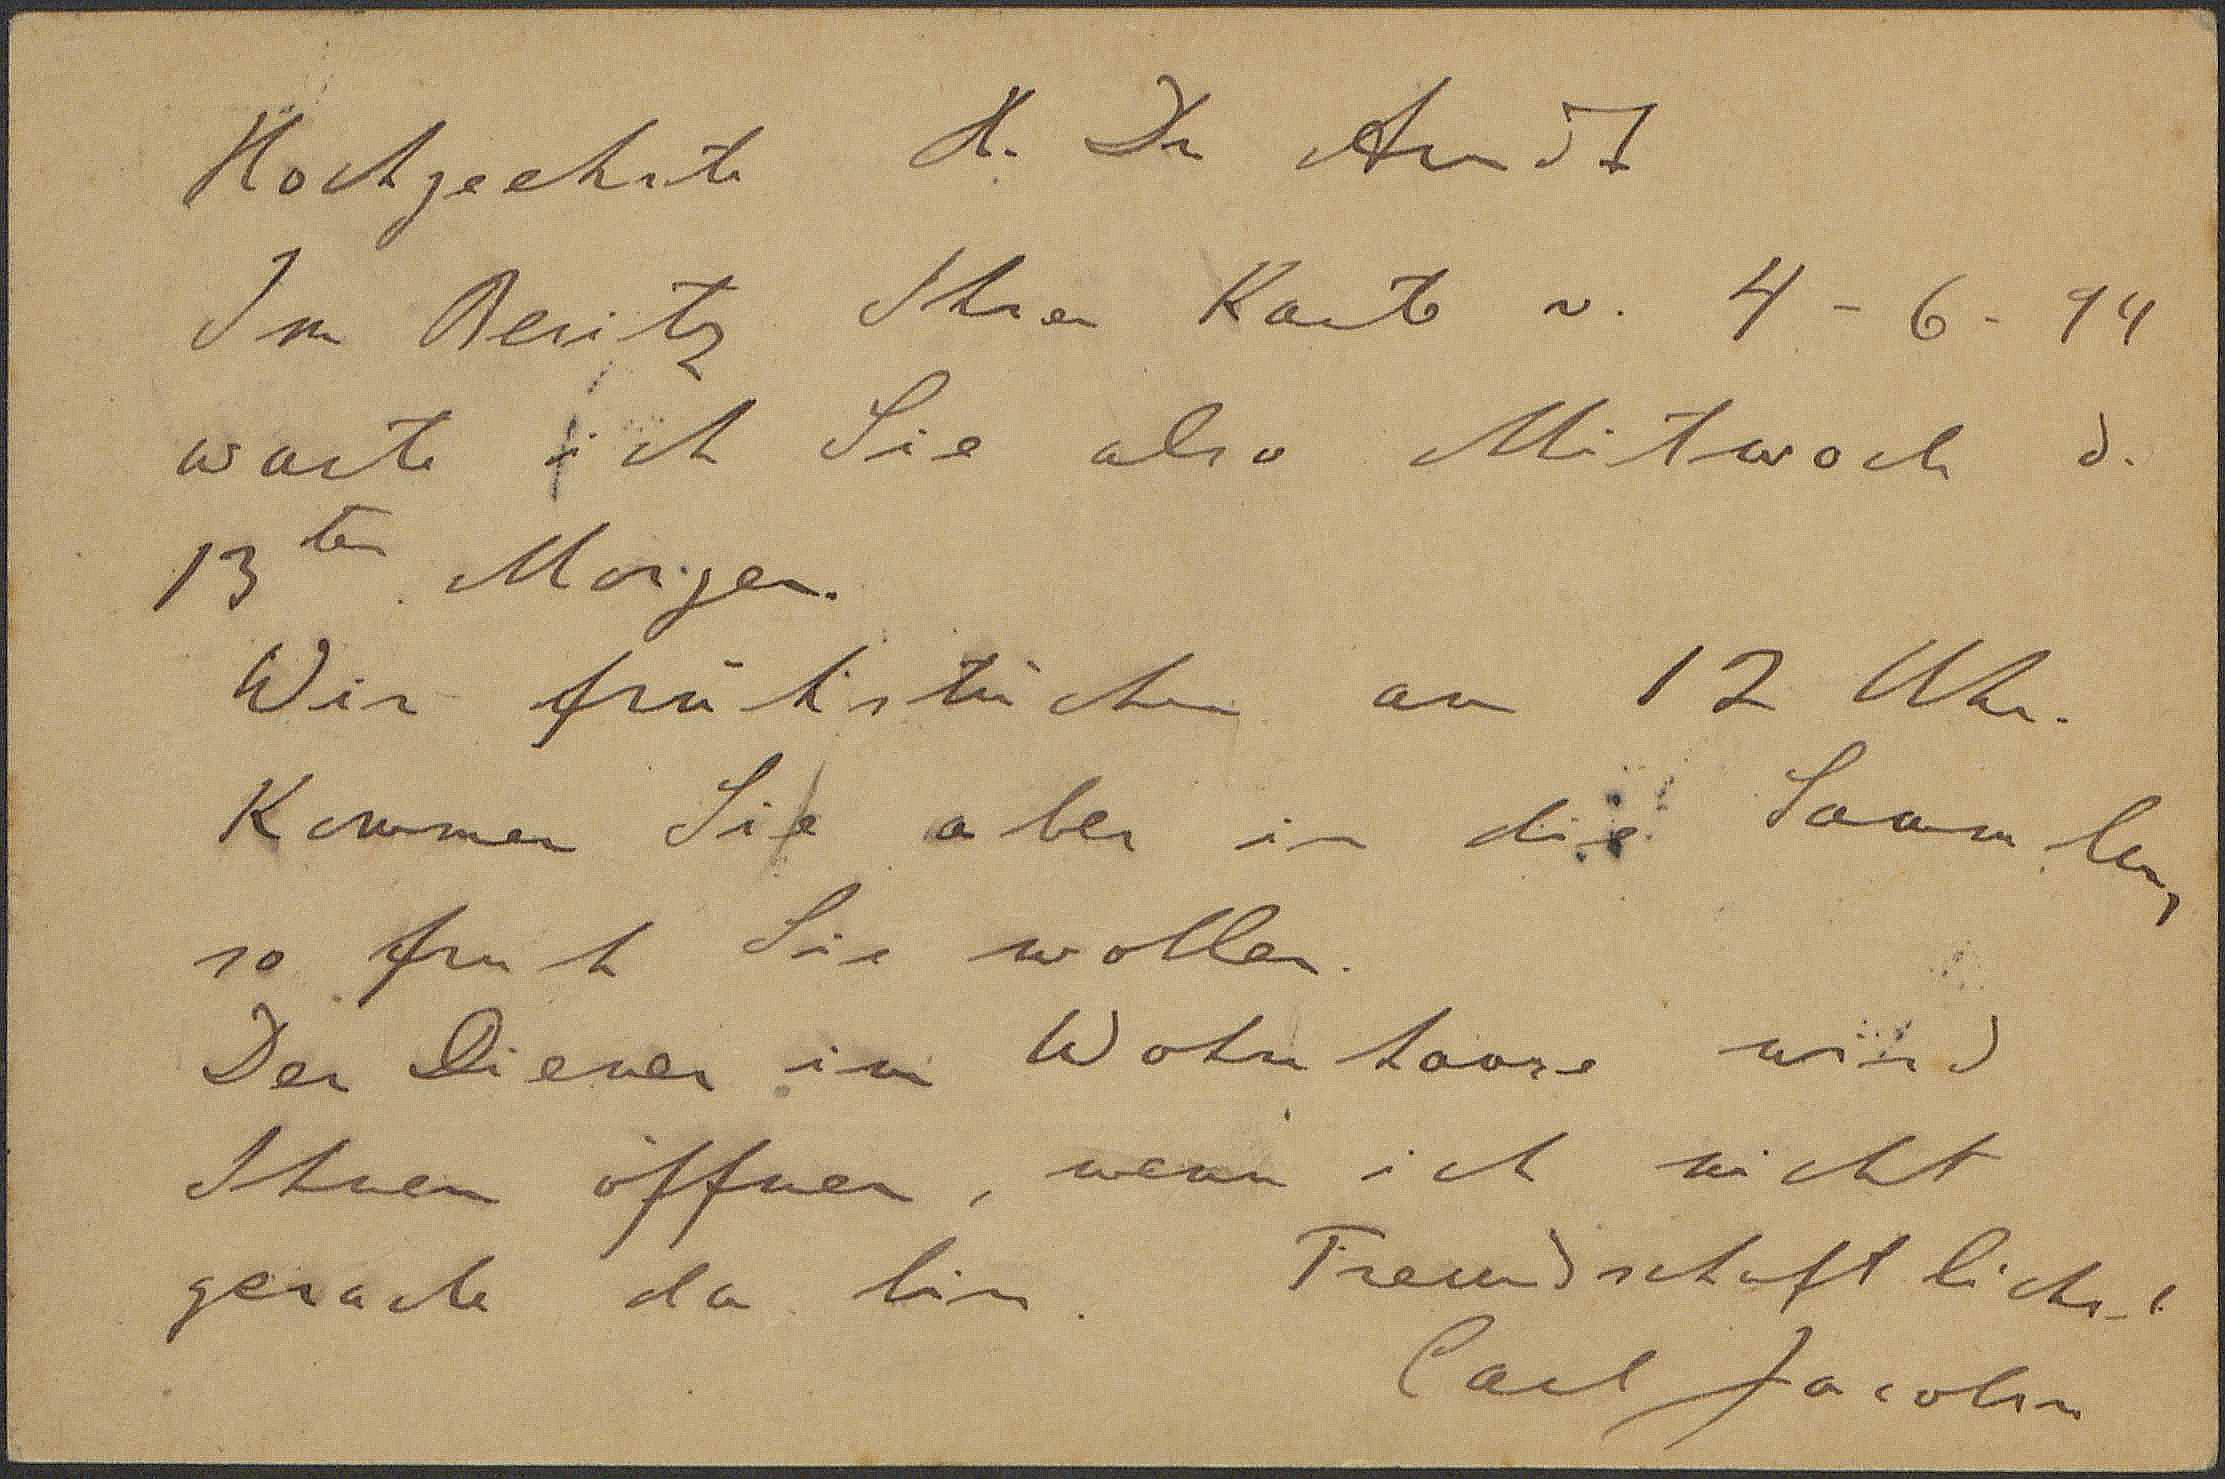 Hochgeehrte H. Dr Arndt
Im Besitz Ihrer Karte v. 4-6-94
warte ich Sie also Mitwoch d.
13ten Morgen.
Wir frühstücken am 12 Uhr.
Kommen Sie aber in die Sammlung
so fruh Sie wollen.
Der Diener im Wohnhause wird
Ihnen öffnen, wenn ich nicht
gerade da bin. Freundschaftlichst
Carl Jacobsen